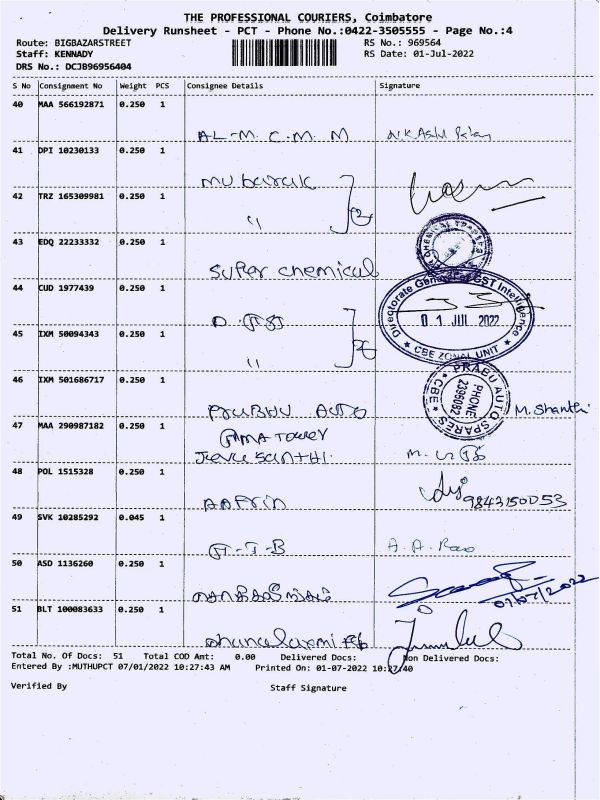 THE PROFESSIONAL COURIERS, Coimbatore
Delivery Runsheet - PCT - Phone No.:0422-3505555 - Page No.:4
Route: BIGBAZARSTREET
RS No.: 969564
Staff: KENNADY
RS Date: 01-Jul-2022
DRS No.: DCJB96956404
S No Consignment No Weight PCS Consignee Details Signature
40 MAA 566192871 0.250 1
AL-M. C. M. M
41 DPI 10230133 0.250 1
Mubarak
42 TRZ 165309981 0.250 1
"
43 EDQ 22233332 0.250 1
Super chemical
44 CUD 1977439 0.250 1
Directorate General of GST Intelligence
01 JUL 2022
★ CBE ZONAL UNIT ★
45 IXM 50094343 0.250 1
"
46 IXM 501686717 0.250 1
PRABU AUTO SPARES
PHONE
2395082
★ CBE ★
Prubhu AUTO M. Shanthi
47 MAA 290987182 0.250 1
TOWER
48 POL 1515328 0.250 1
AAfrin 9843150053
49 SVK 10285292 0.045 1
A. A. Rao
50 ASD 1136260 0.250 1
01/07/2022
51 BLT 100083633 0.250 1
Dhanalaxmi
Total No. Of Docs: 51 Total COD Amt: 0.00 Delivered Docs: Non Delivered Docs:
Entered By :MUTHUPCT 07/01/2022 10:27:43 AM Printed On: 01-07-2022 10:27:40
Verified By Staff Signature